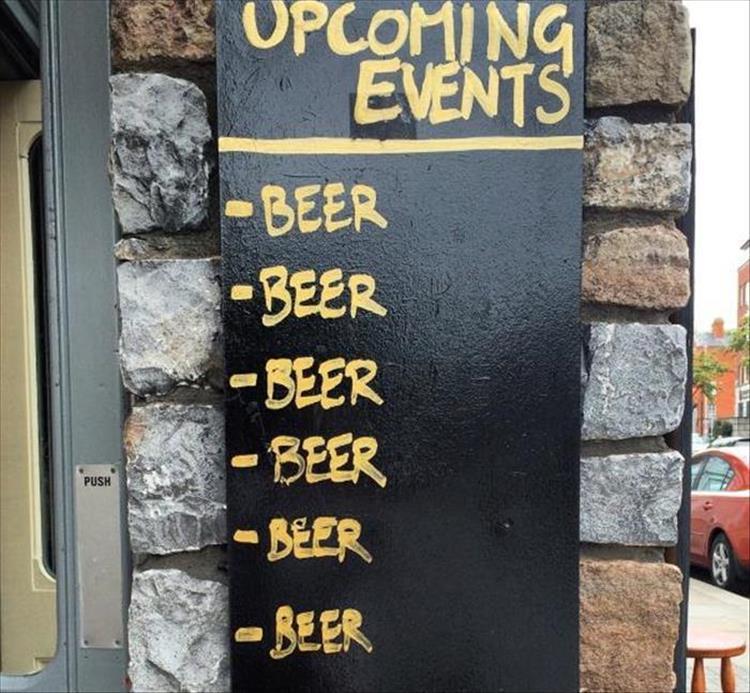 UPCOMING
EVENTS
- BEER
- BEER
- BEER
- BEER
- BEER
- BEER
PUSH